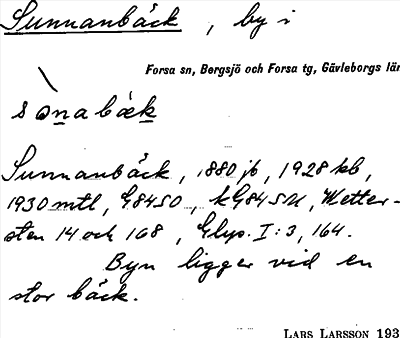 Sunnanbäck, by i
Forsa sn, Bergsjö och Forsa tg, Gävleborgs län
sònabæk
Sunnanbäck, 1880 jb, 1928 kb,
1930 mtl, G84SO, kG84SU, Wetter-
sten 14 och 168, Glys. I:3, 164.
Byn ligger vid en
stor bäck.
LARS LARSSON 193